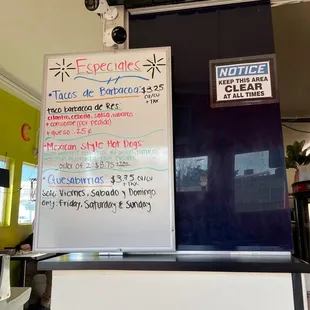 Especiales
• Tacos de Barbacoa $3.25 CA/CU
+ TAX
taco barbacoa de Res:
cilantro, cebolla, salsa, rabanos
+ consome (por pedido)
+ queso .25¢
• Mexican Style Hot Dogs
order of 2 $8.75
• Quesabirrias $3.75 CA/CU
+ TAX
Solo Viernes, Sabado y Domingo
only: Friday, Saturday & Sunday
NOTICE
KEEP THIS AREA
CLEAR
AT ALL TIMES